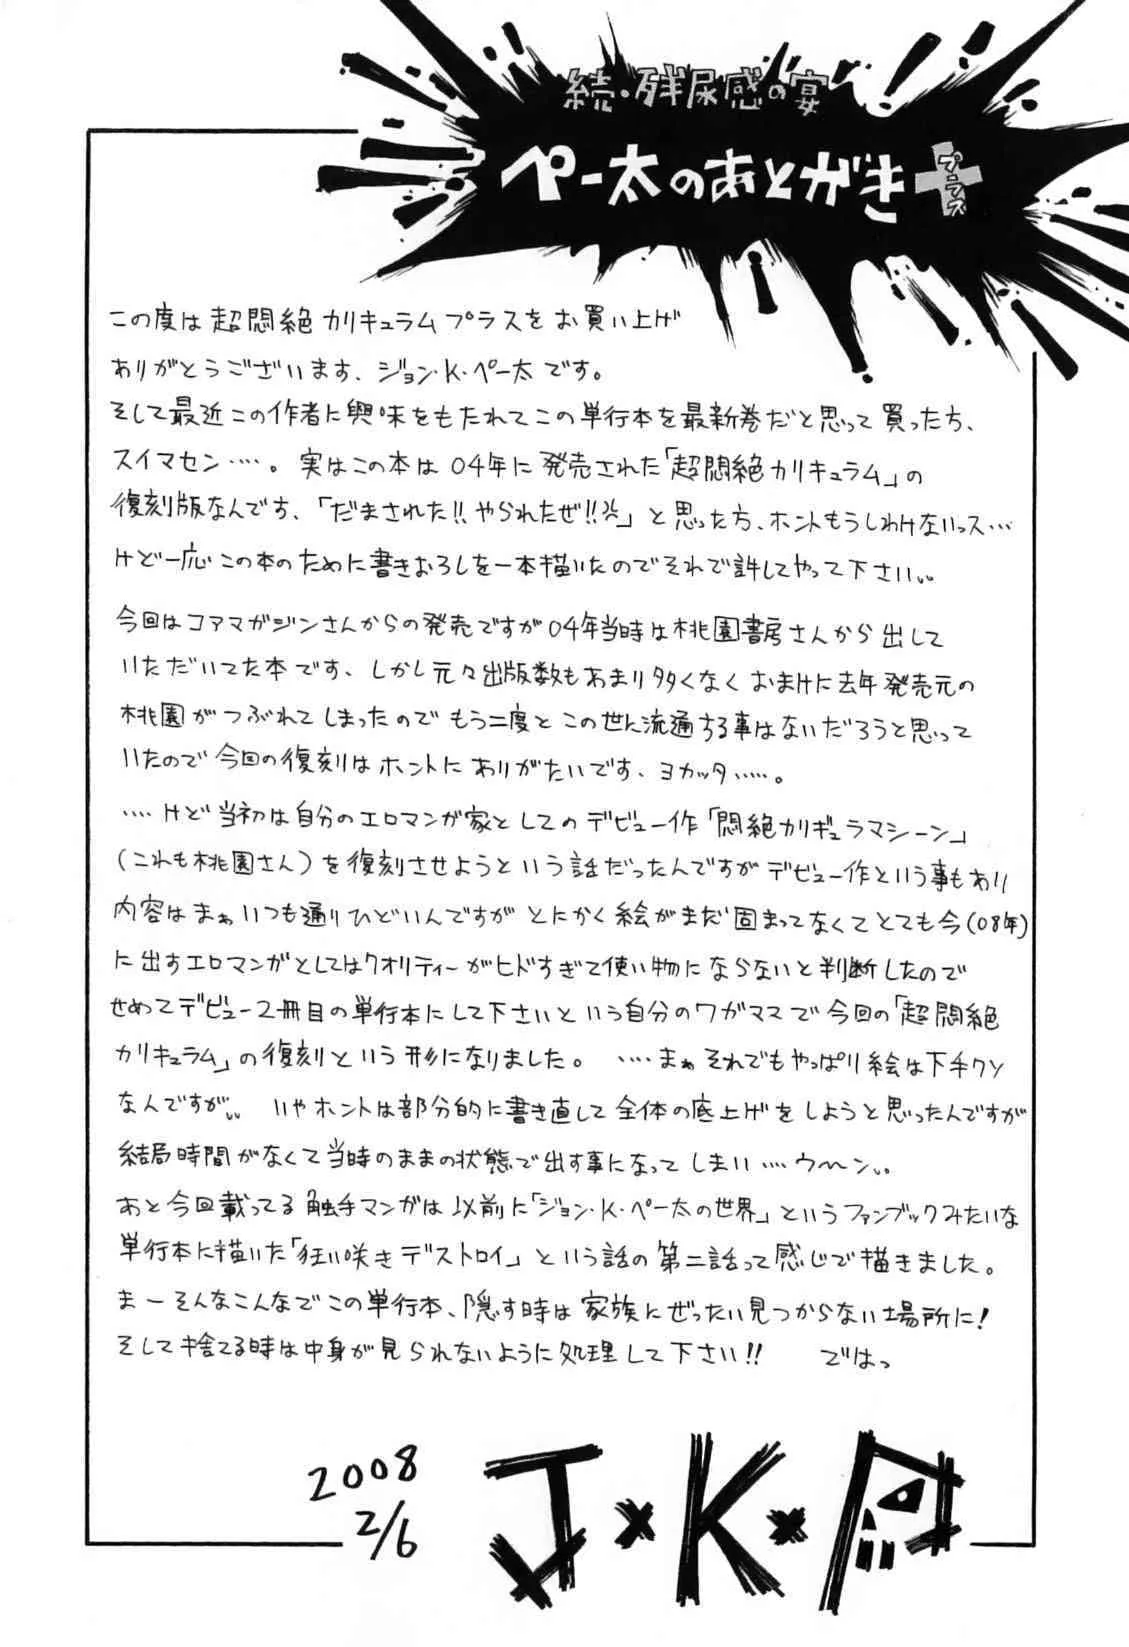 続・残尿感の宴
ペー太のあとがき
プラス
この度は超悶絶カリキュラムプラスをお買い上げ
ありがとうございます、ジョン・K・ペー太です。
そして最近この作者に興味をもたれてこの単行本を最新巻だと思って買った方、
スイマセン‥‥。実はこの本は04年に発売された「超悶絶カリキュラム」の
復刻版なんです、「だまされた!!やられたぜ!!」と思った方、ホントもうしわけないっス…
けど一応この本のために書きおろしを一本描いたのでそれで許してやって下さい。。
今回はコアマガジンさんからの発売ですが04年当時は桃園書房さんから出して
いただいてた本です、しかし元々出版数もあまり多くなくおまけに去年発売元の
桃園がつぶれてしまったのでもう二度とこの世に流通する事はないだろうと思って
いたので今回の復刻はホントにありがたいです、ヨカッタ‥‥。
‥‥けど当初は自分のエロマンガ家としてのデビュー作「悶絶カリギュラマシーン」
(これも桃園さん)を復刻させようという話だったんですがデビュー作という事もあり
内容はまぁいつも通りひどいんですがとにかく絵がまだ固まってなくてとても今(08年)
に出すエロマンガとしてはクオリティーがヒドすぎて使い物にならないと判断したので
せめてデビュー2冊目の単行本にして下さいという自分のワガママで今回の「超悶絶
カリキュラム」の復刻という形になりました。‥‥まぁそれでもやっぱり絵は下手クソ
なんですが。。 いやホントは部分的に書き直して全体の底上げをしようと思ったんですが
結局時間がなくて当時のままの状態で出す事になってしまい‥‥ウ〜ン。。
あと今回載ってる触手マンガは以前に「ジョン・K・ペー太の世界」というファンブックみたいな
単行本に描いた「狂い咲きデストロイ」という話の第二話って感じで描きました。
まーそんなこんなでこの単行本、隠す時は家族にぜったい見つからない場所に!
そして捨てる時は中身が見られないように処理して下さい!! ではっ
2008
2/6
J×K×P